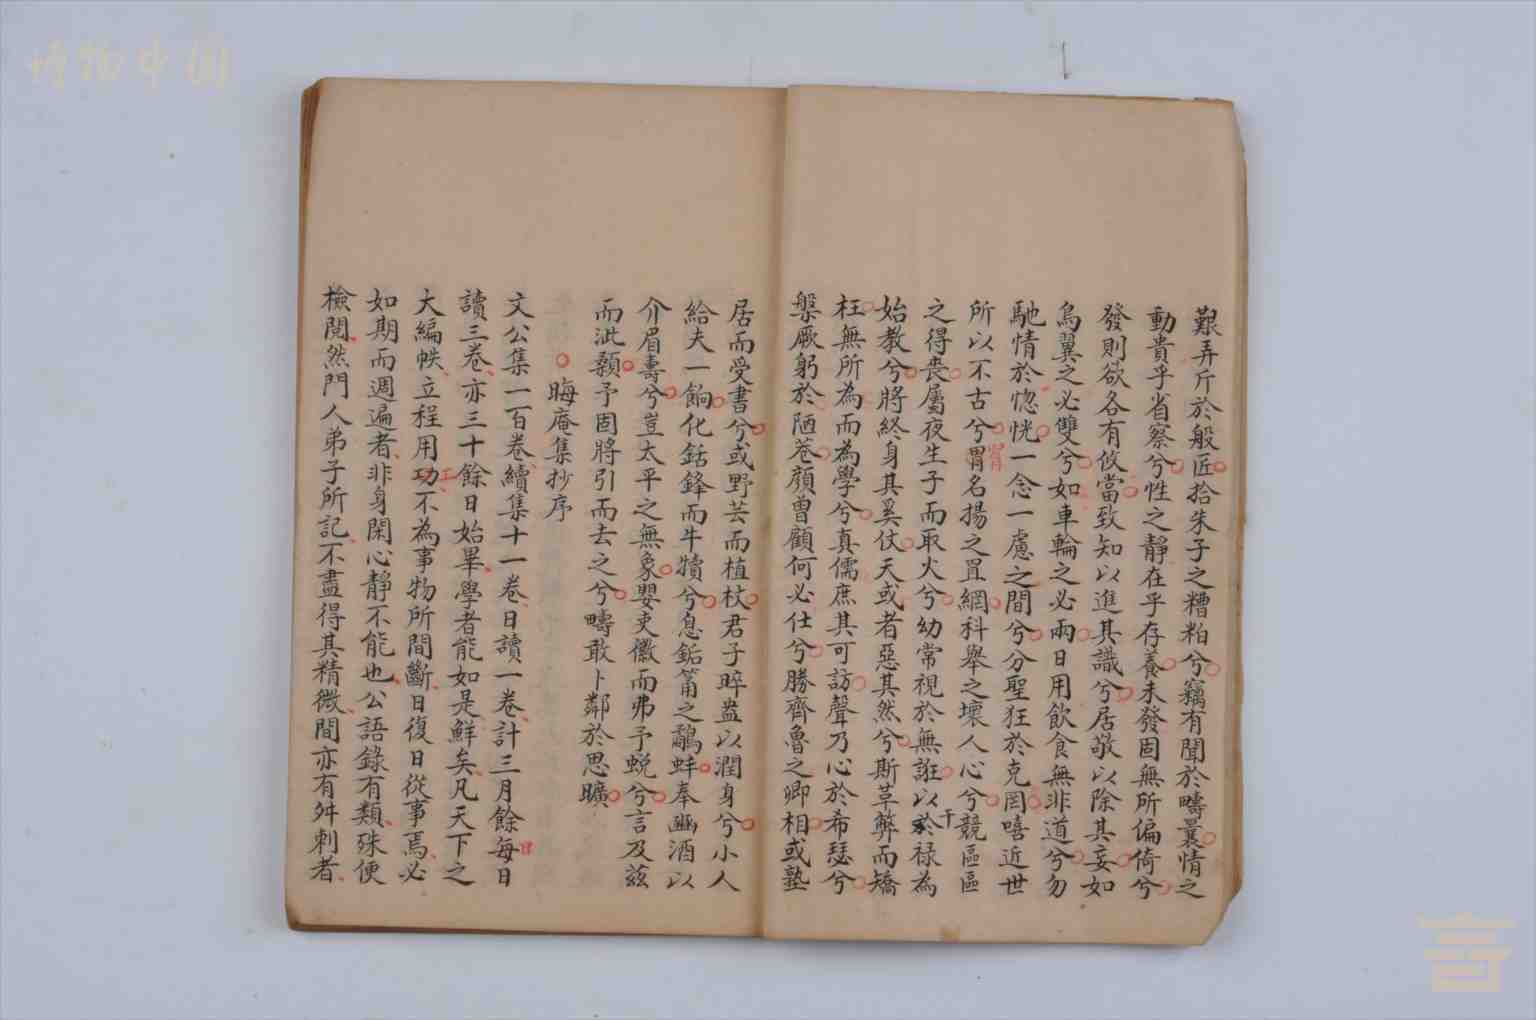 艱弄斤於般匠拾朱子之糟粕兮竊有聞於疇曩情之
動貴乎省察兮性之靜在乎存養未發固無所偏倚兮
發則欲各有攸當致知以進其識兮居敬以除其妄如
鳥翼之必雙兮如車輪之必兩日用飲食無非道兮勿
馳情於惚恍一念一慮之間兮分聖狂於克罔嘻近世
所以不古兮罥名揚之罝網科舉之壞人心兮競區區
之得喪屬夜生子而取火兮幼常視於無誑以干祿為
始教兮將終身其奚仗天或者惡其然兮斯草弊而矯
枉無所為而為學兮真儒庶其可訪聲乃心於希瑟兮
槃厥躬於陋巷顏曾顧何必仕兮勝齊魯之卿相或塾
居而受書兮或野芸而植杖君子睟盎以潤身兮小人
給夫一餉化銛鋒而牛犢兮息鉐筩之鷸蚌奉豳酒以
介眉壽兮豈太平之無象嬰吏徽而弗予蛻兮言及茲
而泚顙予固將引而去之兮疇敢卜鄰於思曠
晦庵集抄序
文公集一百卷續集十一卷日讀一卷計三月餘每日
讀三卷亦三十餘日始畢學者能如是鮮矣凡天下之
大編帙立程用功不為事物所間斷日復日從事焉必
如期而週遍者非身閑心靜不能也公語錄有類殊便
檢閱然門人弟子所記不盡得其精微間亦有舛剌者
博物中国